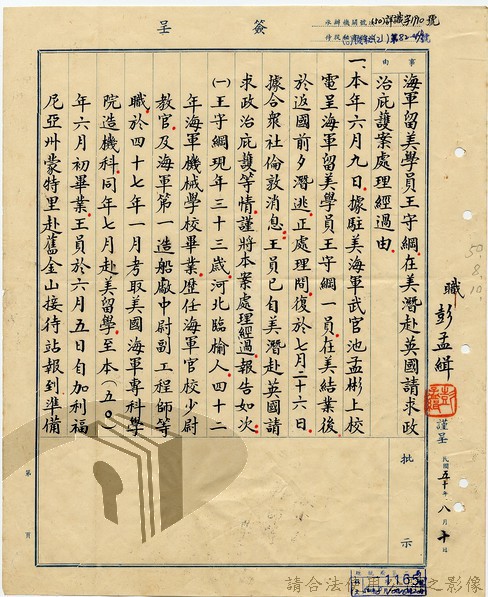 簽呈
事由
海軍留美學員王守綱在美潛赴英國請求政
治庇護案處理經過由
一、本年六月九日據駐美海軍武官池孟彬上校
電呈海軍留美學員王守綱一員在美結業後
於返國前夕潛逃正處理間復於七月二十六日
據合衆社倫敦消息王員已自美潛赴英國請
求政治庇護等情謹將本案處理經過報告如次
(一)王守綱現年三十三歲河北臨榆人四十二
年海軍機械學校畢業歷任海軍官校少尉
教官及海軍第一造船廠中尉副工程師等
職於四十七年一月考取美國海軍專科學
院造機科同年七月赴美留學至本(五〇)
年六月初畢業王員於六月五日自加利福
尼亞州蒙特里赴舊金山接待站報到準備
職彭孟緝
謹呈
民國五十年八月十日
批示
第 頁
50.8.10.
1165
請合法使用 之影像